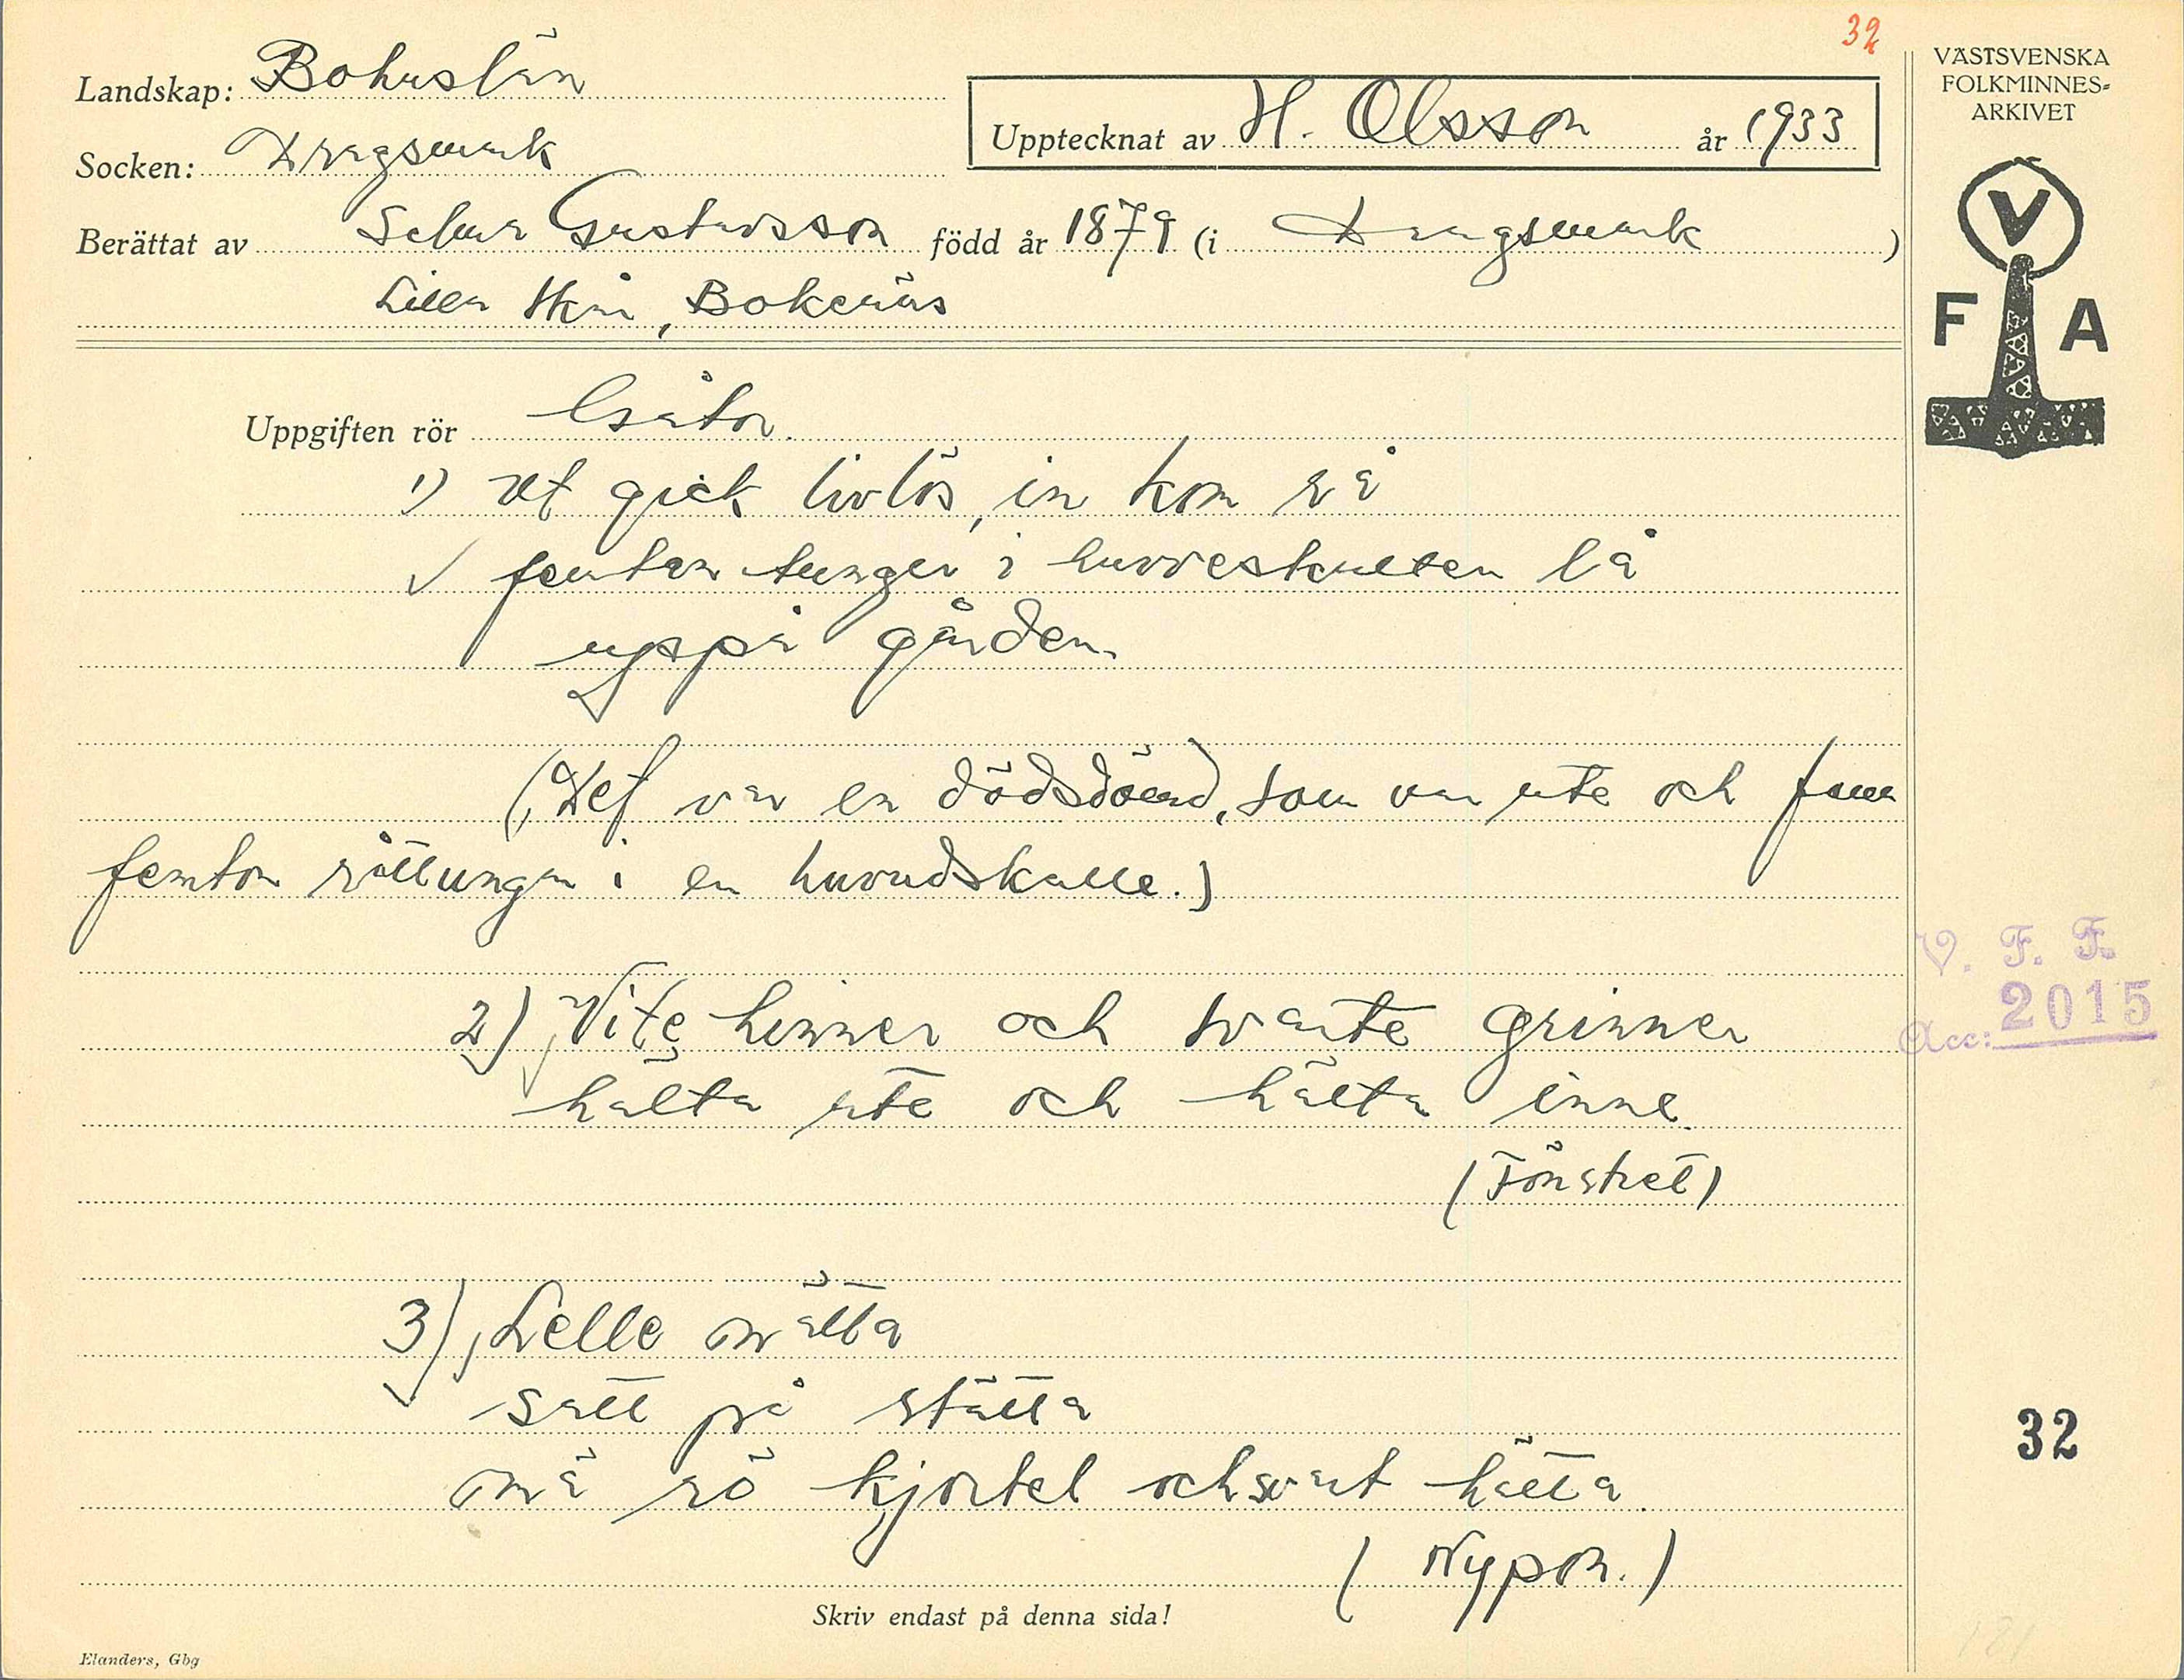 32
VÄSTSVENSKA
FOLKMINNES=
ARKIVET
Landskap: Bohuslän
Upptecknat av H. Olsson år 1933
Socken: Dragsmark
Berättat av Selma Gustavsson född år 1879 (i Dragsmark)
Lilla Bokenäs
V
F A
Uppgiften rör Gåtor.
1) Ut gick livlös, in kom så
femtan tunger i huvveskallen lå
uppå gården.
(Det var en dödsdömd, som var ute och fann
femton råttungar i en huvudskalle.)
2) Vite hinner och svarte grinner
hälta ute och hälta inne.
(Fönstret)
3) Lelle mätta
satt på stätta
mä rö kjortel och svart hätta.
(Nypon.)
V. F. F.
Acc: 2015
32
Skriv endast på denna sida!
Elanders, Gbg